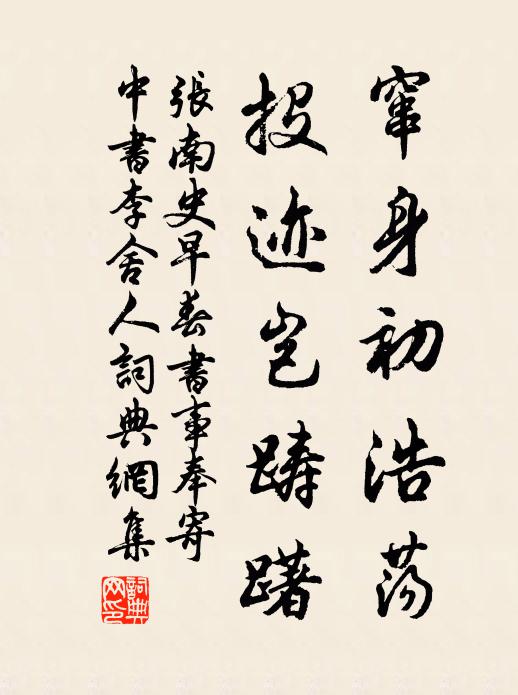 窜身初浩荡
投迹岂踌躇
張南史早春書事奉寄
中書李舍人詞典網集
詞典
网印